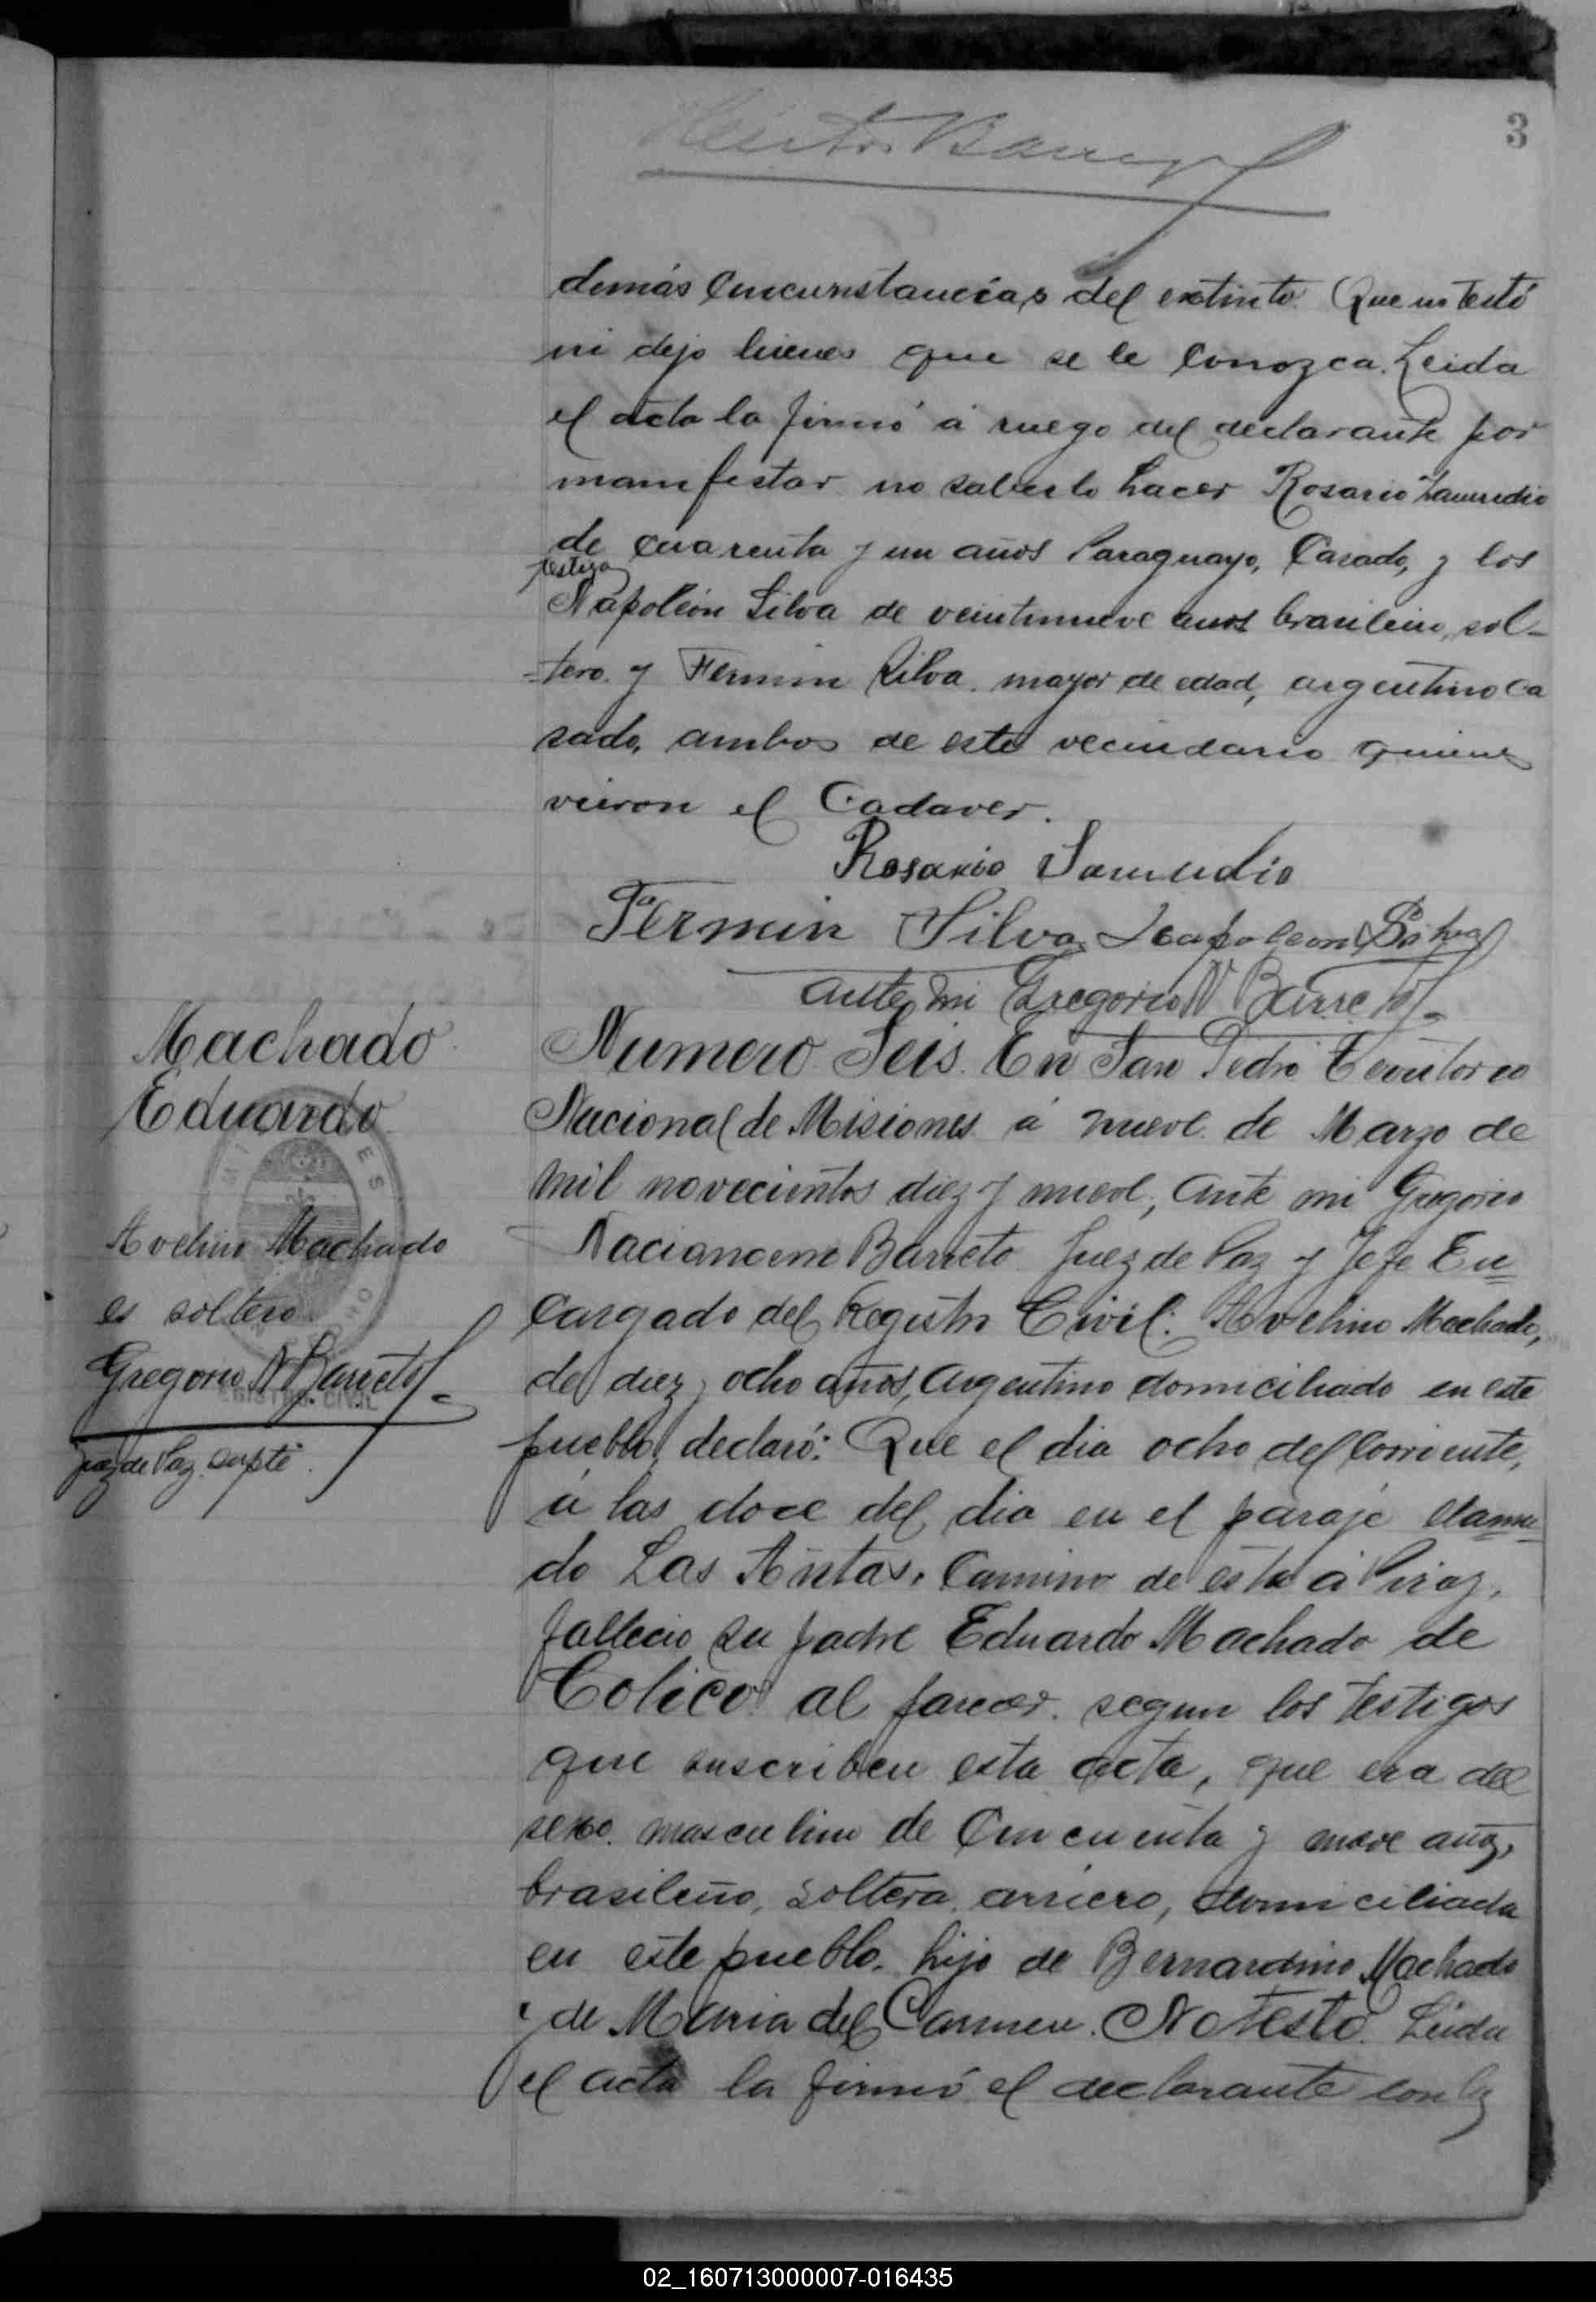 3
demás circunstancias del extinto. Que no testó
ni dejo bienes que se le conozca. Leida
el acta la firmó á ruego del declarante por
manifestar no saberlo hacer Rosario Samudio
de cuarenta y un años Paraguayo, Casado, y los
testigos
Napoleón Silva de veintinueve años brasileño, sol-
-tero. y Fermin Silva. mayor de edad, argentino ca
sado, ambos de este vecindario quienes
vieron el Cadaver.
Rosario Samudio
Fermin Silva Napoleon Silva
Ante mi Gregorio N Barreto
Machado
Eduardo
Avelino Machado
es soltero
Gregorio N Barreto
Juez de Paz supte.
Numero Seis. En San Pedro Territorio
Nacional de Misiones á nueve de Marzo de
mil novecientos diez y nueve, Ante mi Gregorio
Nacianceno Barreto Juez de Paz y Jefe En
cargado del Registro Civil: Avelino Machado,
de diez y ocho años, Argentino domiciliado en este
pueblo, declaró: Que el dia ocho del corriente,
á las doce del dia en el paraje llama
do Las Antas, Camino de esta á Piray,
fallecio su padre Eduardo Machado de
Colico al parecer. segun los testigos
que suscriben esta acta, que era del
sexo. masculino de Cincuenta y nueve años,
brasileño, soltera. arriero, domiciliada
en este pueblo. hijo de Bernardino Machado
y de Maria del Carmen. No testó. Leida
el acta la firmó el declarante con los
02_160713000007-016435